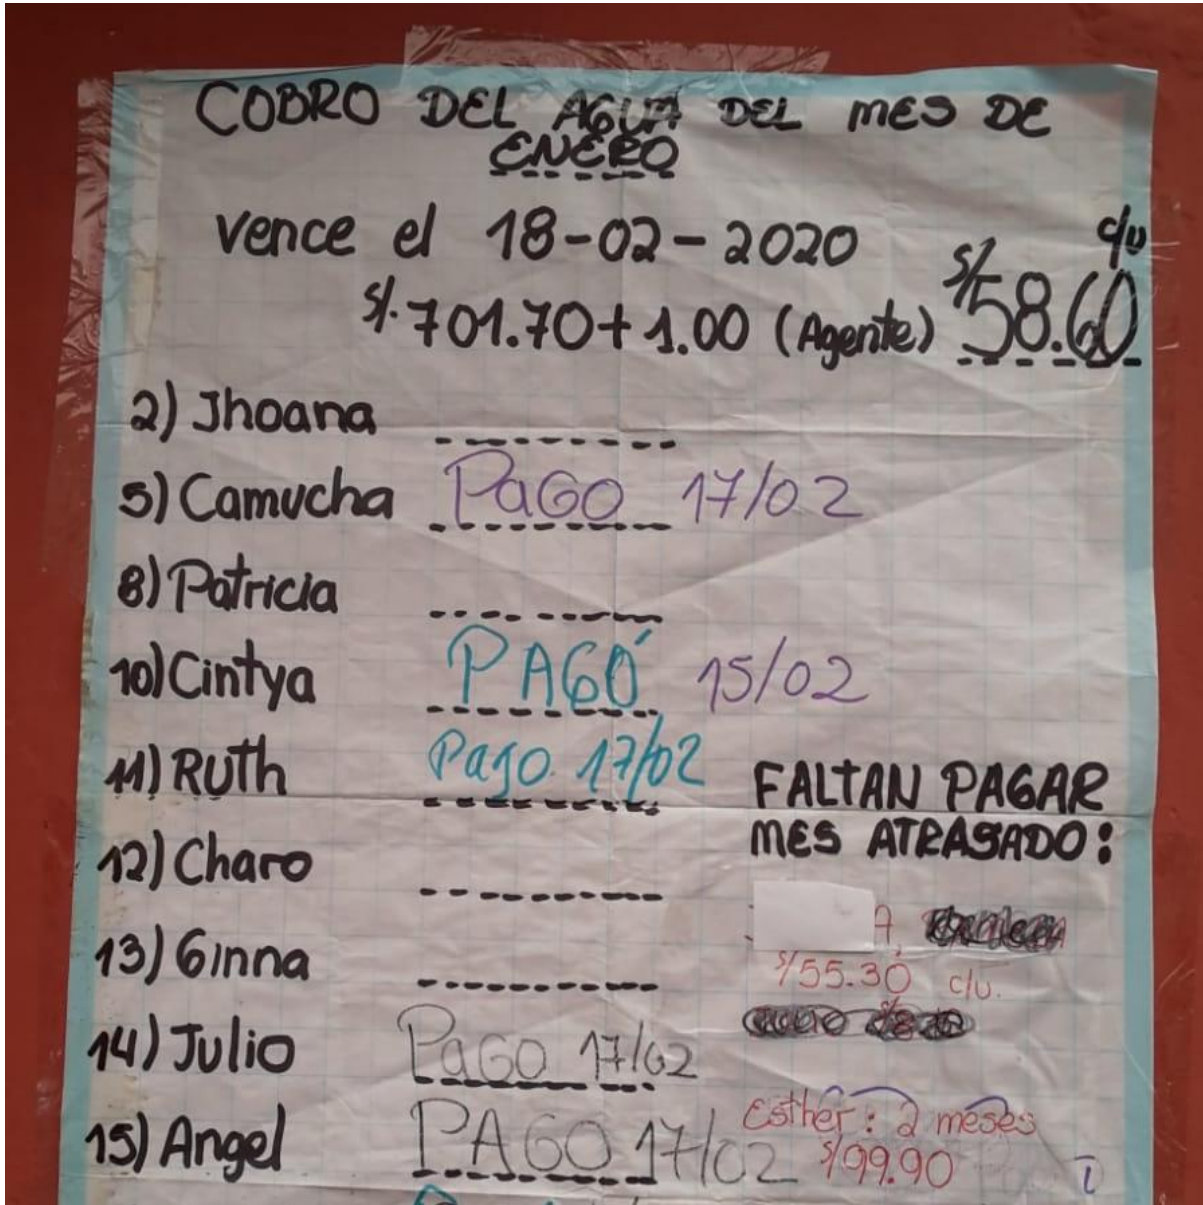 COBRO DEL AGUA DEL MES DE
ENERO
Vence el 18-02-2020
S/. 701.70 + 1.00 (Agente) S/58.60 c/u
2) Jhoana
5) Camucha PaGO 17/02
8) Patricia
10) Cintya PAGÓ 15/02
11) RUTh Pago 17/02
12) Charo
13) Ginna
14) Julio PaGO 17/02
15) Angel PAGO 17/02
FALTAN PAGAR
MES ATRASADO:
S/55.30 c/u.
Esther: 2 meses
S/99.90